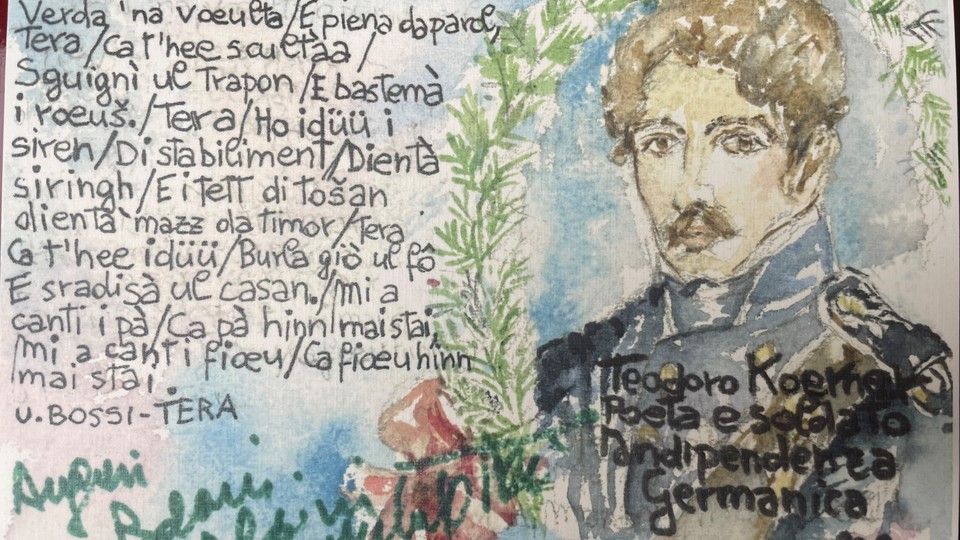 Verda 'na voeulta/E piena da parol,
Tera/Ca t'hee scultàa/
Sguignì ul Trapon/E bastemà
i roeuš./Tera/Ho idüü i
siren/Di stabiliment/Dientà
siringh/E i tett di tošan
dientà mazz da timor/Tera
Ca t'hee idüü/Burla giò ul fô
E sradisà ul casan./Mi a
canti i pà/Ca pà hinn mai stai,
/Mi a canti i fioeu/Ca fioeu hinn
mai stai.
U. BOSSI-TERA
Auguri
Teodoro Koerner
Poeta e soldato
Indipendenza
Germanica